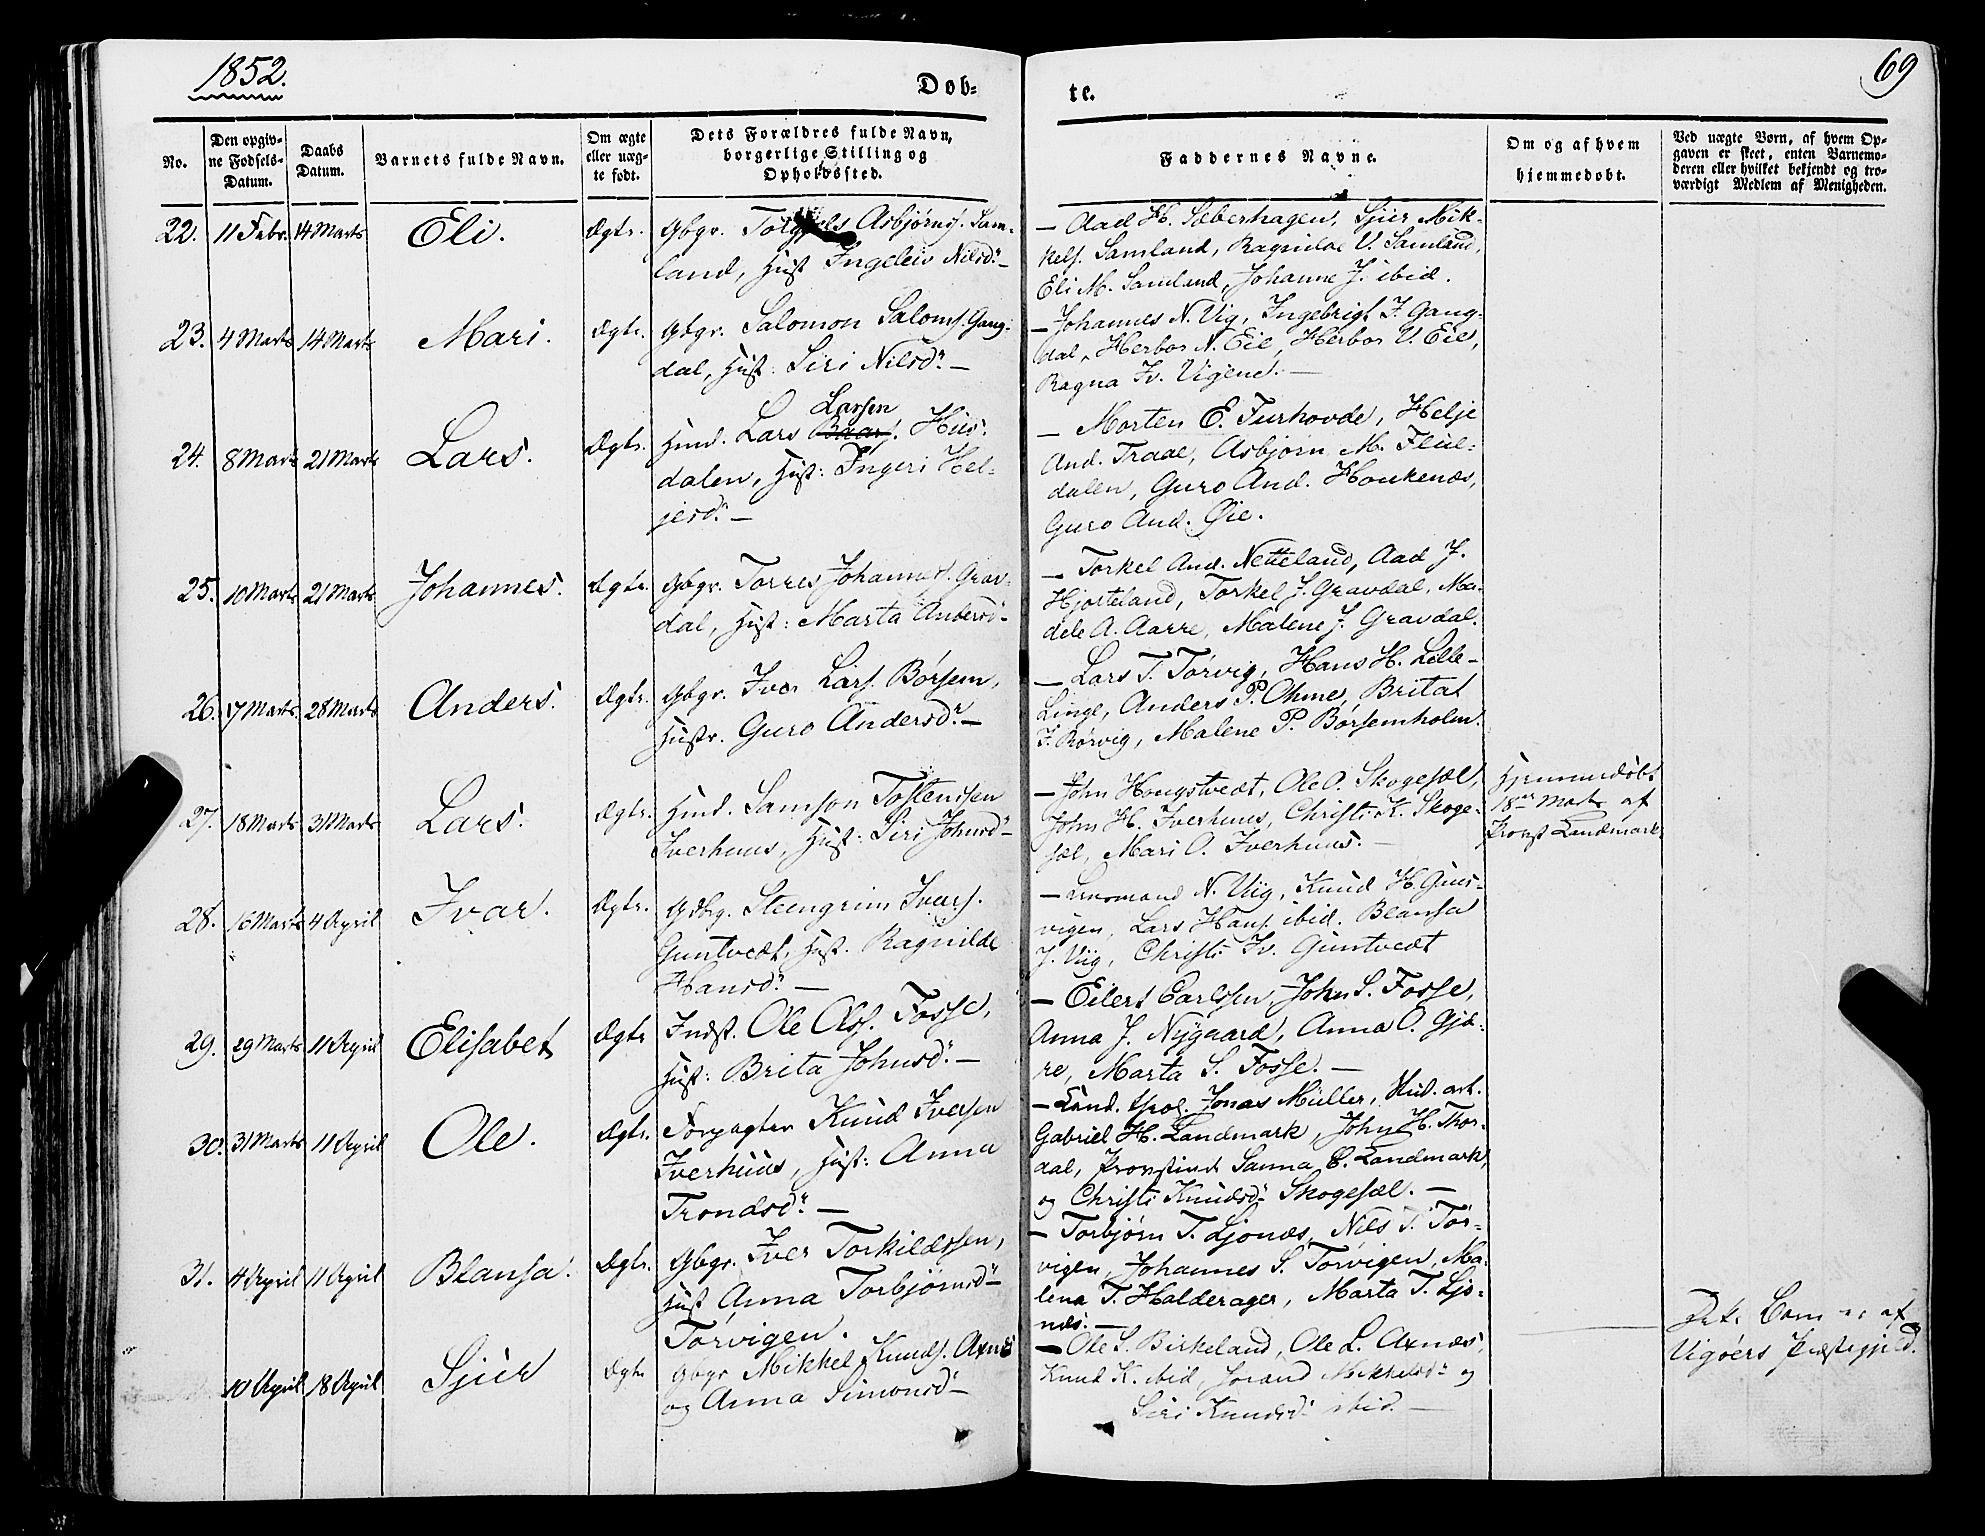 1852.
69
Døb-
te.
No.
Den opgiv-
ne Fødsels-
Datum.
Daabs
Datum.
Barnets fulde Navn.
Om ægte
eller uæg-
te født.
Dets Forældres fulde Navn,
borgerlige Stilling og
Opholdssted.
Faddernes Navne.
Om og af hvem
hjemmedøbt.
Ved uægte Børn, af hvem Op-
gaven er skeet, enten Barnemo-
deren eller hvilket bekjendt og tro-
værdigt Medlem af Menigheden.
22. 11 Febr. 14 Marts Eli. Ægte. Gbgr. Asbjørns. Sam-
land, Hust Ingeleiv Nilsd.
— Aad H. Sæberhagen, Sjur Mik-
kels. Samland, Ragnilde V. Samland,
Eli M. Samland, Johanne J. ibid.
23. 4 Marts 14 Marts Mari. Ægte. Gbgr. Salomon Saloms. Gang-
dal, Hust: Siri Nilsd. —
— Johannes N. Vig, Ingebrigt J. Gang-
dal, Herbor N. Eie, Herbor V. Eie,
Ragna Iv. Vigene. —
24. 8 Marts 21 Marts Lars. Ægte. Hmd. Lars Larsen Hus-
dalen, Hust: Ingeri Hel-
jesd. —
— Morten E. Furhovde, Helje
And. Traae, Asbjørn M. Flul-
dalen, Guro And. Haukenæs,
Guro And. Øie.
25. 10 Marts 21 Marts Johannes. Ægte. Gbgr. Torres Johannes. Grav-
dal, Hust: Marta Andersd.
— Torkel And. Netteland, Aad J.
Hjorteland, Torkel J. Gravdal, Ma-
dele A. Aarre, Malene J. Gravdal.
26. 7 Marts 28 Marts Anders. Ægte. Gbgr. Iver Lars. Børsem,
Hustr. Guro Andersd. —
— Lars T. Tørvig, Hans H. Lille-
Linge, Anders P. Ohme, Brita
J. Rørvig, Malene P. Børsemholm.
27. 18 Marts 31 Marts Lars. Ægte. Hmd. Samson Tostenssen
Iverhuus, Hust: Siri Johnsd. —
— John Hougstvedt, Ole O. Skogesæl,
John H. Iverhuus, Christi K. Skoge-
sæl, Mari O. Iverhuus. —
Hjemmedøbt
18de Marts af
Provst Landmark
28. 16 Marts 4 April Ivar. Ægte. Gbrg. Steengrim Ivars.
Guntvedt, Hust. Ragnilde
Hansd. —
— N. Viig, Knud H. Gjers-
vigen, Lars Hans. ibid. Blansa
J. Viig, Christi Iv. Guntvedt
29. 29 Marts 11 April Elisabet Ægte Indst. Ole Ols. Fosse,
Hust: Brita Johnsd. —
— Eilert Carlssen, John S. Fosse,
Anna J. Nygaard, Anna O. Gjæ-
re, Marta S. Fosse. —
30. 31 Marts 11 April Ole. Ægte. Forpagter Knud Iversen
Iverhuus, Hust: Anna
Trondsd. —
— Cand. theol. Jonas Müller, Stud. art.
Gabriel H. Landmark, John H. Thor-
dal, Provstinde Sanna C. Landmark,
og Christi Knudsd. Skogesæl. —
31. 4 April 11 April Blansa. Ægte. Gbgr. Iver Torkildssen,
Hust Anna Torbjørnsd.
Tørvigen.
— Torbjørn T. Ljonæs, Nils T. Tør-
vigen, Johannes S. Tørvigen, Ma-
lena T. Halderager, Marta T. Ljo-
næs. —
10 April 18 April Sjur Ægte Gbgr Mikkel Knuds. Axnæs
og Anna Simonsd. —
— Ole S. Birkeland, Ole L. Axnæs,
Knud K. ibid, Jorand Mikkelsd. og
Siri Knudsd. ibid. —
Dette Barn er af
Vigøers Præstegjeld.